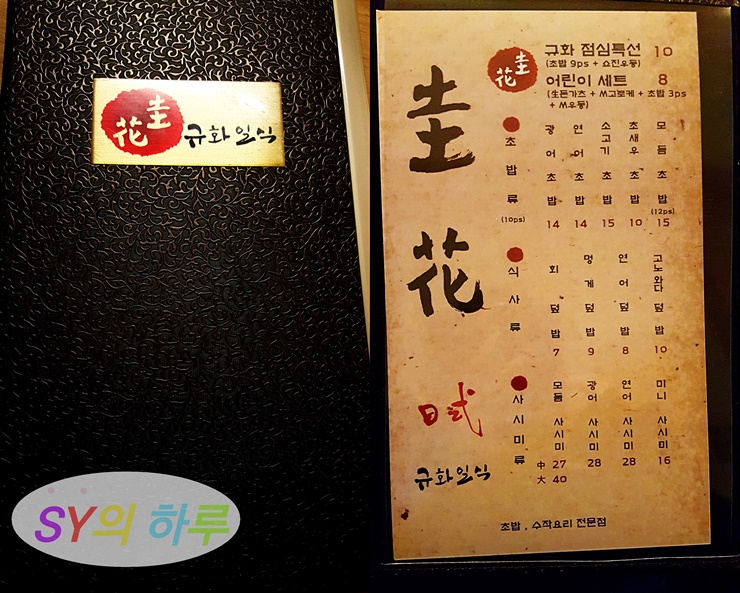 圭花
규화일식
SY의 하루
圭花
日式
규화일식
圭花
규화 점심특선 10
(초밥 9ps + 쇼진우동)
어린이 세트 8
(生돈가츠 + 쓰고로케 + 초밥 3ps
+ 쓰우동)
초밥류 (10ps)
광어초밥 14
연어초밥 14
소고기초밥 15
초새우초밥 10
모듬초밥 (12ps) 15
식사류
회덮밥 7
멍게덮밥 9
연어덮밥 8
고노와다덮밥 10
사시미류
모듬사시미 中 27 大 40
광어사시미 28
연어사시미 28
미니사시미 16
초밥 , 수작요리 전문점